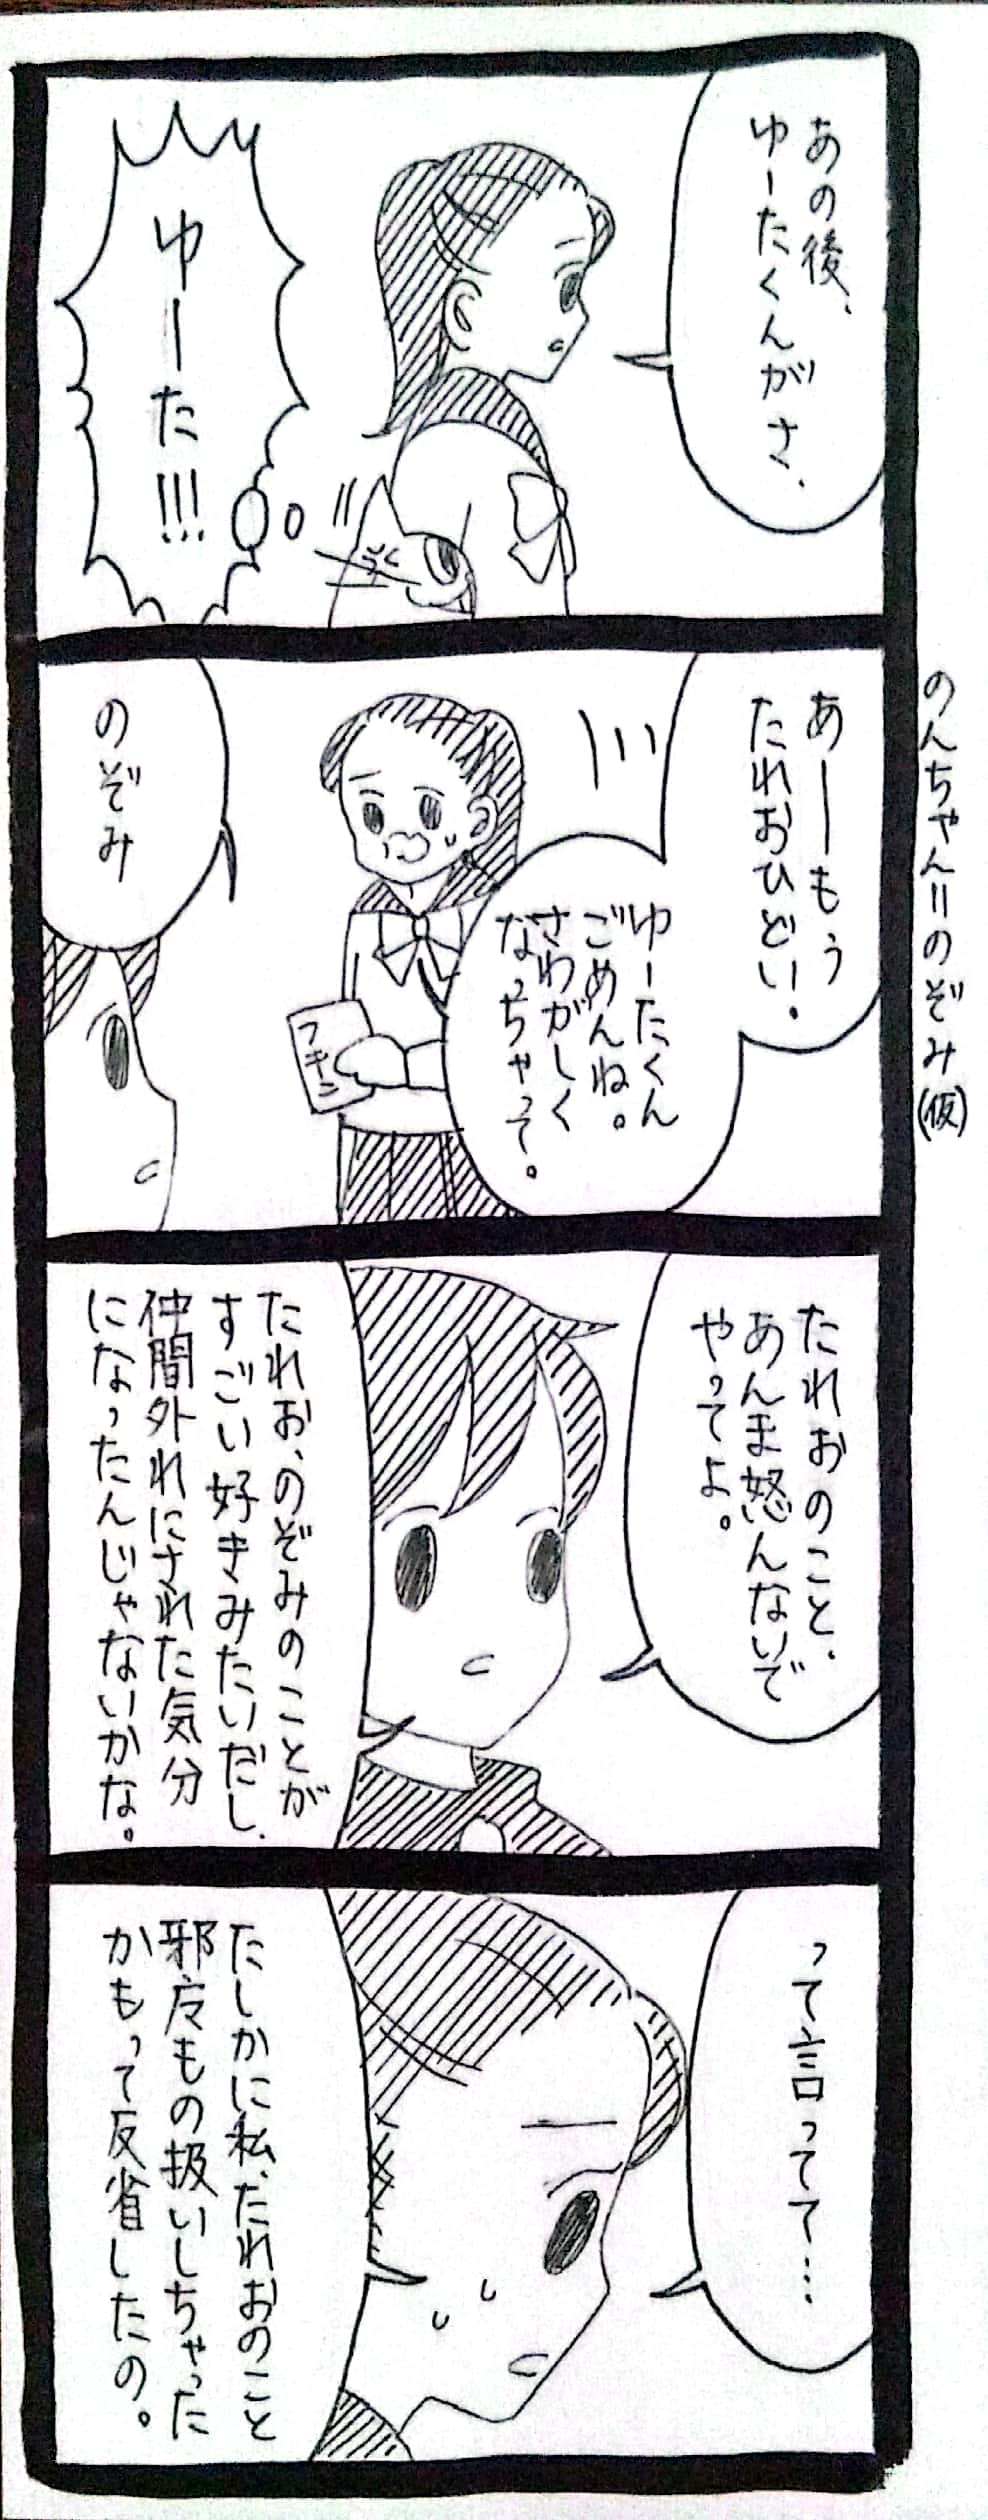 のんちゃん=のぞみ(仮)
あの後、
ゆーたくんがさ、
ゆーた!!!
あーーもう
たれおひどい。
ゆーたくん
ごめんね。
さわがしく
なっちゃって。
フキン
のぞみ
たれおのこと、
あんま怒んないで
やってよ。
たれお、のぞみのことが
すごい好きみたいだし、
仲間外れにされた気分
になったんじゃないかな。
って言ってて…
たしかに私、たれおのこと
邪广もの扱いしちゃった
かもって反省したの。